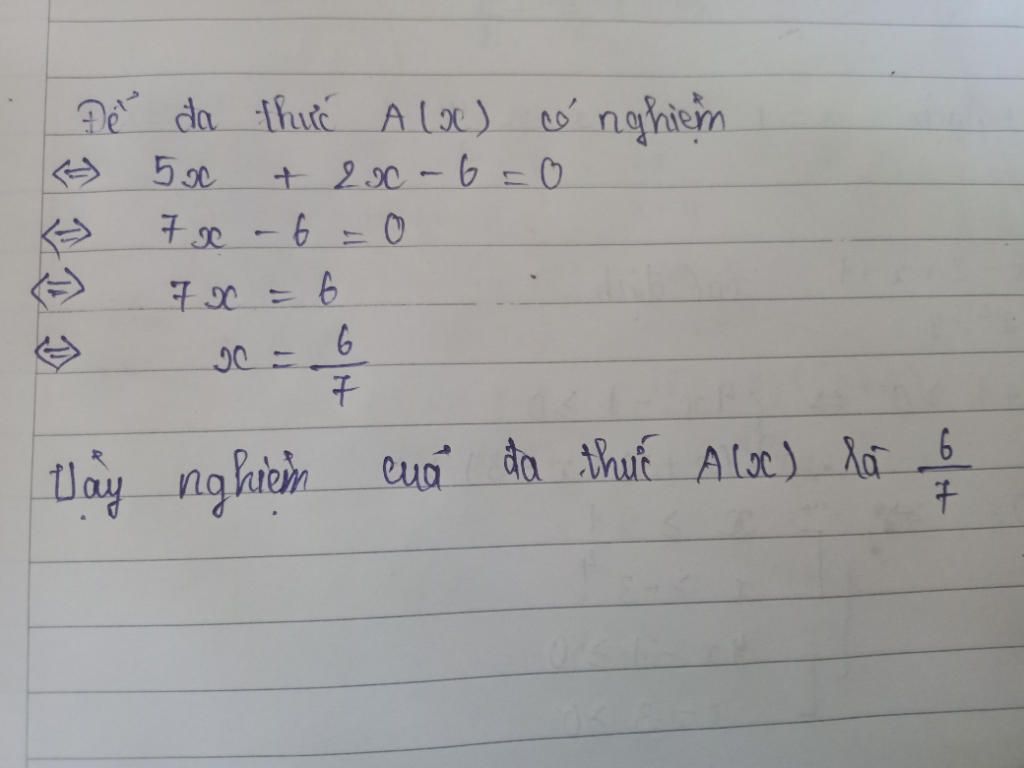 Để đa thức A(x) có nghiệm
⇔ 5x + 2x - 6 = 0
⇔ 7x - 6 = 0
⇔ 7x = 6
⇔ x = 6/7
Vậy nghiệm của đa thức A(x) là 6/7